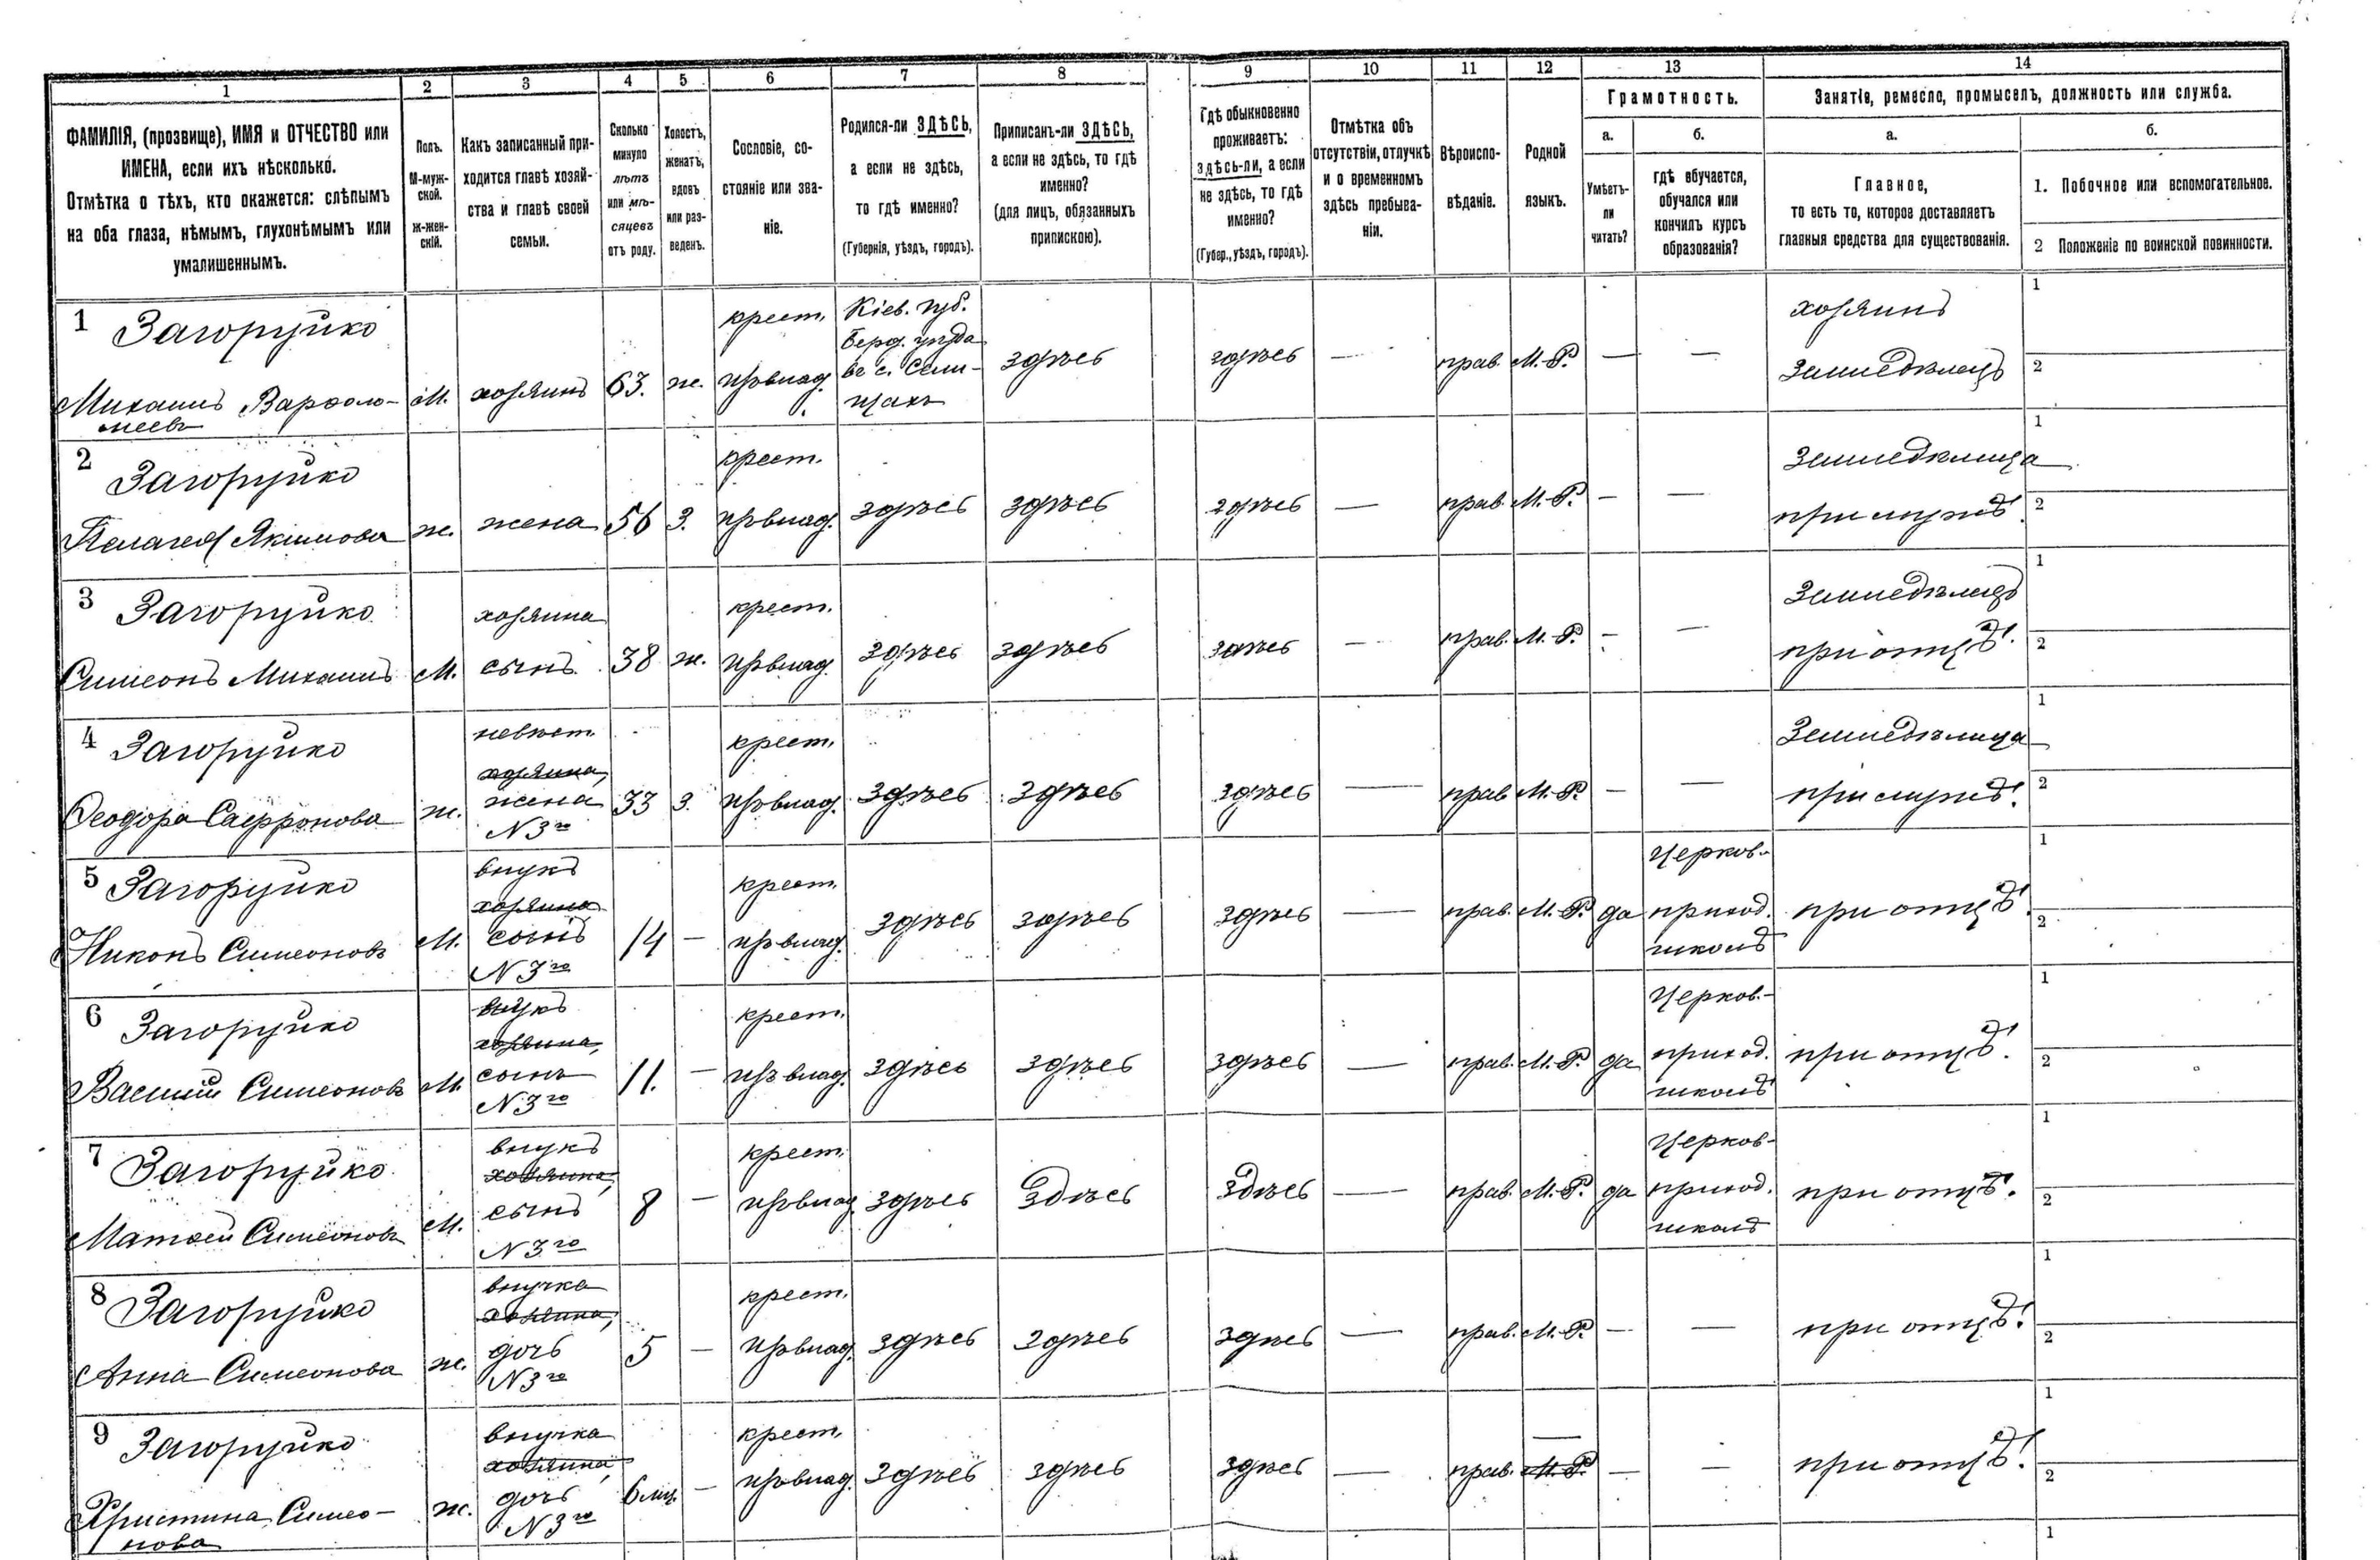 1
2
3
4
5
6
7
8
9
10
11
12
13
14
ФАМИЛІЯ, (прозвище), ИМЯ и ОТЧЕСТВО или
ИМЕНА, если ихъ нѣсколько.
Отмѣтка о тѣхъ, кто окажется: слѣпымъ
на оба глаза, нѣмымъ, глухонѣмымъ или
умалишеннымъ.
Полъ.
М-муж-
ской.
Ж-жен-
скій.
Какъ записанный при-
ходится главѣ хозяй-
ства и главѣ своей
семьи.
Сколько
минуло
лѣтъ
или мѣ-
сяцевъ
отъ роду.
Холостъ,
женатъ,
вдовъ
или раз-
веденъ.
Сословіе, со-
стояніе или зва-
ніе.
Родился-ли ЗДѢСЬ,
а если не здѣсь,
то гдѣ именно?
(Губернія, уѣздъ, городъ).
Приписанъ-ли ЗДѢСЬ,
а если не здѣсь, то гдѣ
именно?
(для лицъ, обязанныхъ
припискою).
Гдѣ обыкновенно
проживаетъ:
здѣсь-ли, а если
не здѣсь, то гдѣ
именно?
(Губер., уѣздъ, городъ).
Отмѣтка объ
отсутствіи, отлучкѣ
и о временномъ
здѣсь пребыва-
ніи.
Вѣроиспо-
вѣданіе.
Родной
языкъ.
Грамотность.
а.
Умѣетъ-
ли
читать?
б.
гдѣ обучается,
обучался или
кончилъ курсъ
образованія?
Занятіе, ремесло, промыселъ, должность или служба.
а.
Главное,
то есть то, которое доставляетъ
главныя средства для существованія.
б.
1. Побочное или вспомогательное.
2 Положеніе по воинской повинности.
1 Загоруйко
Михаилъ Варѳоло-
меевъ
М.
хозяинъ
63.
ж.
крест.
изъ влад.
Кіев. губ.
Берд. уѣзда
въ с. Сели-
щахъ
здѣсь
здѣсь
—
прав.
М.-Р.
—
—
хозяинъ
земледѣлецъ
1
2
2 Загоруйко
Пелагея Якимова
ж.
жена
56
з.
крест.
изъ влад.
здѣсь
здѣсь
здѣсь
—
прав.
М.-Р.
—
—
земледѣлица
при мужѣ.
1
2
3 Загоруйко
Симеонъ Михаилъ
М.
хозяина
сынъ
38
ж.
крест.
изъ влад.
здѣсь
здѣсь
здѣсь
—
прав.
М.-Р.
—
—
земледѣлецъ
при отцѣ.
1
2
4 Загоруйко
Ѳеодора Сафронова
ж.
невѣст.
хозяина,
жена
N 3го
33
з.
крест.
изъ влад.
здѣсь
здѣсь
здѣсь
—
прав
М.-Р.
—
—
земледѣлица
при мужѣ.
1
2
5 Загоруйко
Никонъ Симеоновъ
М.
внукъ
хозяина
сынъ
N 3го
14
—
крест.
изъ влад.
здѣсь
здѣсь
здѣсь
—
прав.
М.-Р.
да
Церков.-
приход.
школѣ
при отцѣ.
1
2
6 Загоруйко
Василій Симеоновъ
М
внукъ
хозяина,
сынъ
N 3го
11.
—
крест.
изъ влад.
здѣсь
здѣсь
здѣсь
—
прав.
М.-Р.
да
Церков.-
приход.
школѣ
при отцѣ.
1
2
7 Загоруйко
Матѳей Симеоновъ
М.
внукъ
хозяина,
сынъ
N 3го
8
—
крест.
изъ влад.
здѣсь
здѣсь
здѣсь
—
прав.
М.-Р.
да
Церков-
приход.
школѣ
при отцѣ.
1
2
8 Загоруйко
Анна Симеонова
ж.
внучка
хозяина,
дочь
N 3го
5
—
крест.
изъ влад.
здѣсь
здѣсь
здѣсь
—
прав.
М.-Р.
—
—
при отцѣ.
1
2
9 Загоруйко
Христина Симео-
нова
ж.
внучка
хозяина,
дочь
N 3го
6 мц.
—
крест.
изъ влад.
здѣсь
здѣсь
здѣсь
—
прав.
—
М.-Р.
—
—
при отцѣ.
1
2
1